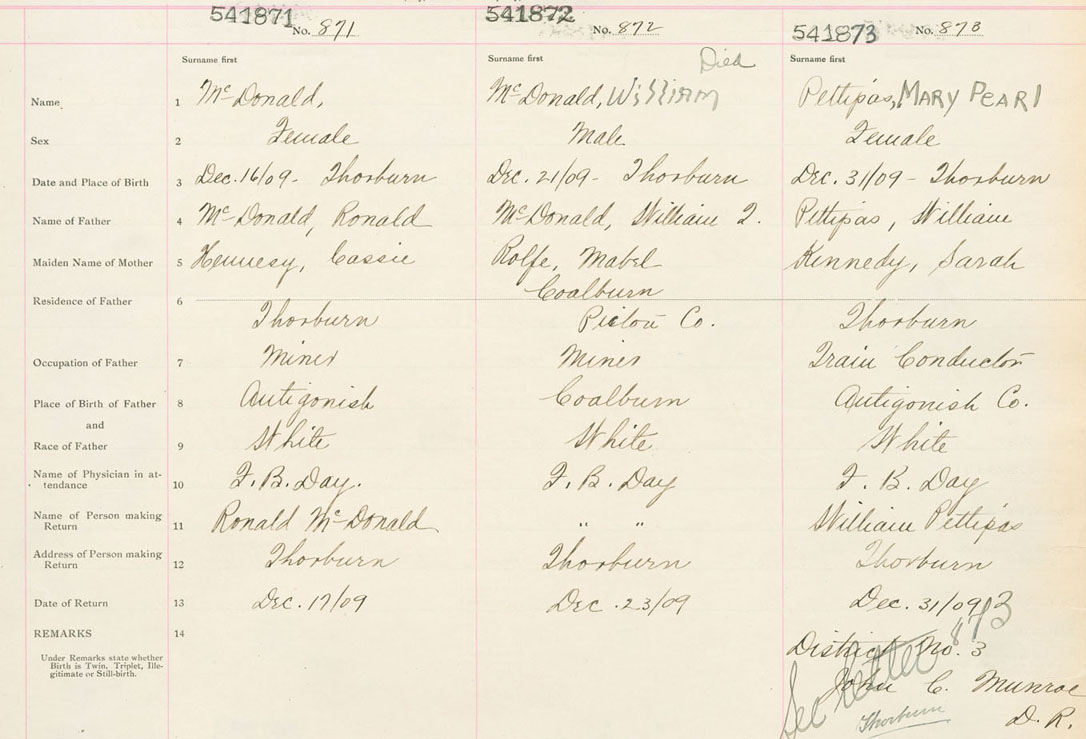 541871 No. 871 541872 No. 872 541873 No. 873
Surname first Surname first Died Surname first
Name 1 McDonald, McDonald, William Pettipas, MARY PEARl
Sex 2 Female Male Female
Date and Place of Birth 3 Dec. 16/09 - Thorburn Dec. 21/09 - Thorburn Dec. 31/09 - Thorburn
Name of Father 4 McDonald, Ronald McDonald, William Pettipas, William
Maiden Name of Mother 5 Hennesy, Cassie Rolfe, Mabel Kennedy, Sarah
Residence of Father 6 Coalburn
Thorburn Pictou Co. Thorburn
Occupation of Father 7 Miner Miner Train Conductor
Place of Birth of Father 8 Antigonish Coalburn Antigonish Co.
and
Race of Father 9 White White White
Name of Physician in at-
tendance 10 F. B. Day. F. B. Day F. B. Day
Name of Person making
Return 11 Ronald McDonald " " William Pettipas
Address of Person making
Return 12 Thorburn Thorburn Thorburn
Date of Return 13 Dec. 17/09 Dec. 23/09 Dec. 31/09
REMARKS 14
Under Remarks state whether
Birth is Twin, Triplet, Ille-
gitimate or Still-birth.
873
District No. 3
See letter
John C. Munroe
Thorburn D. R.